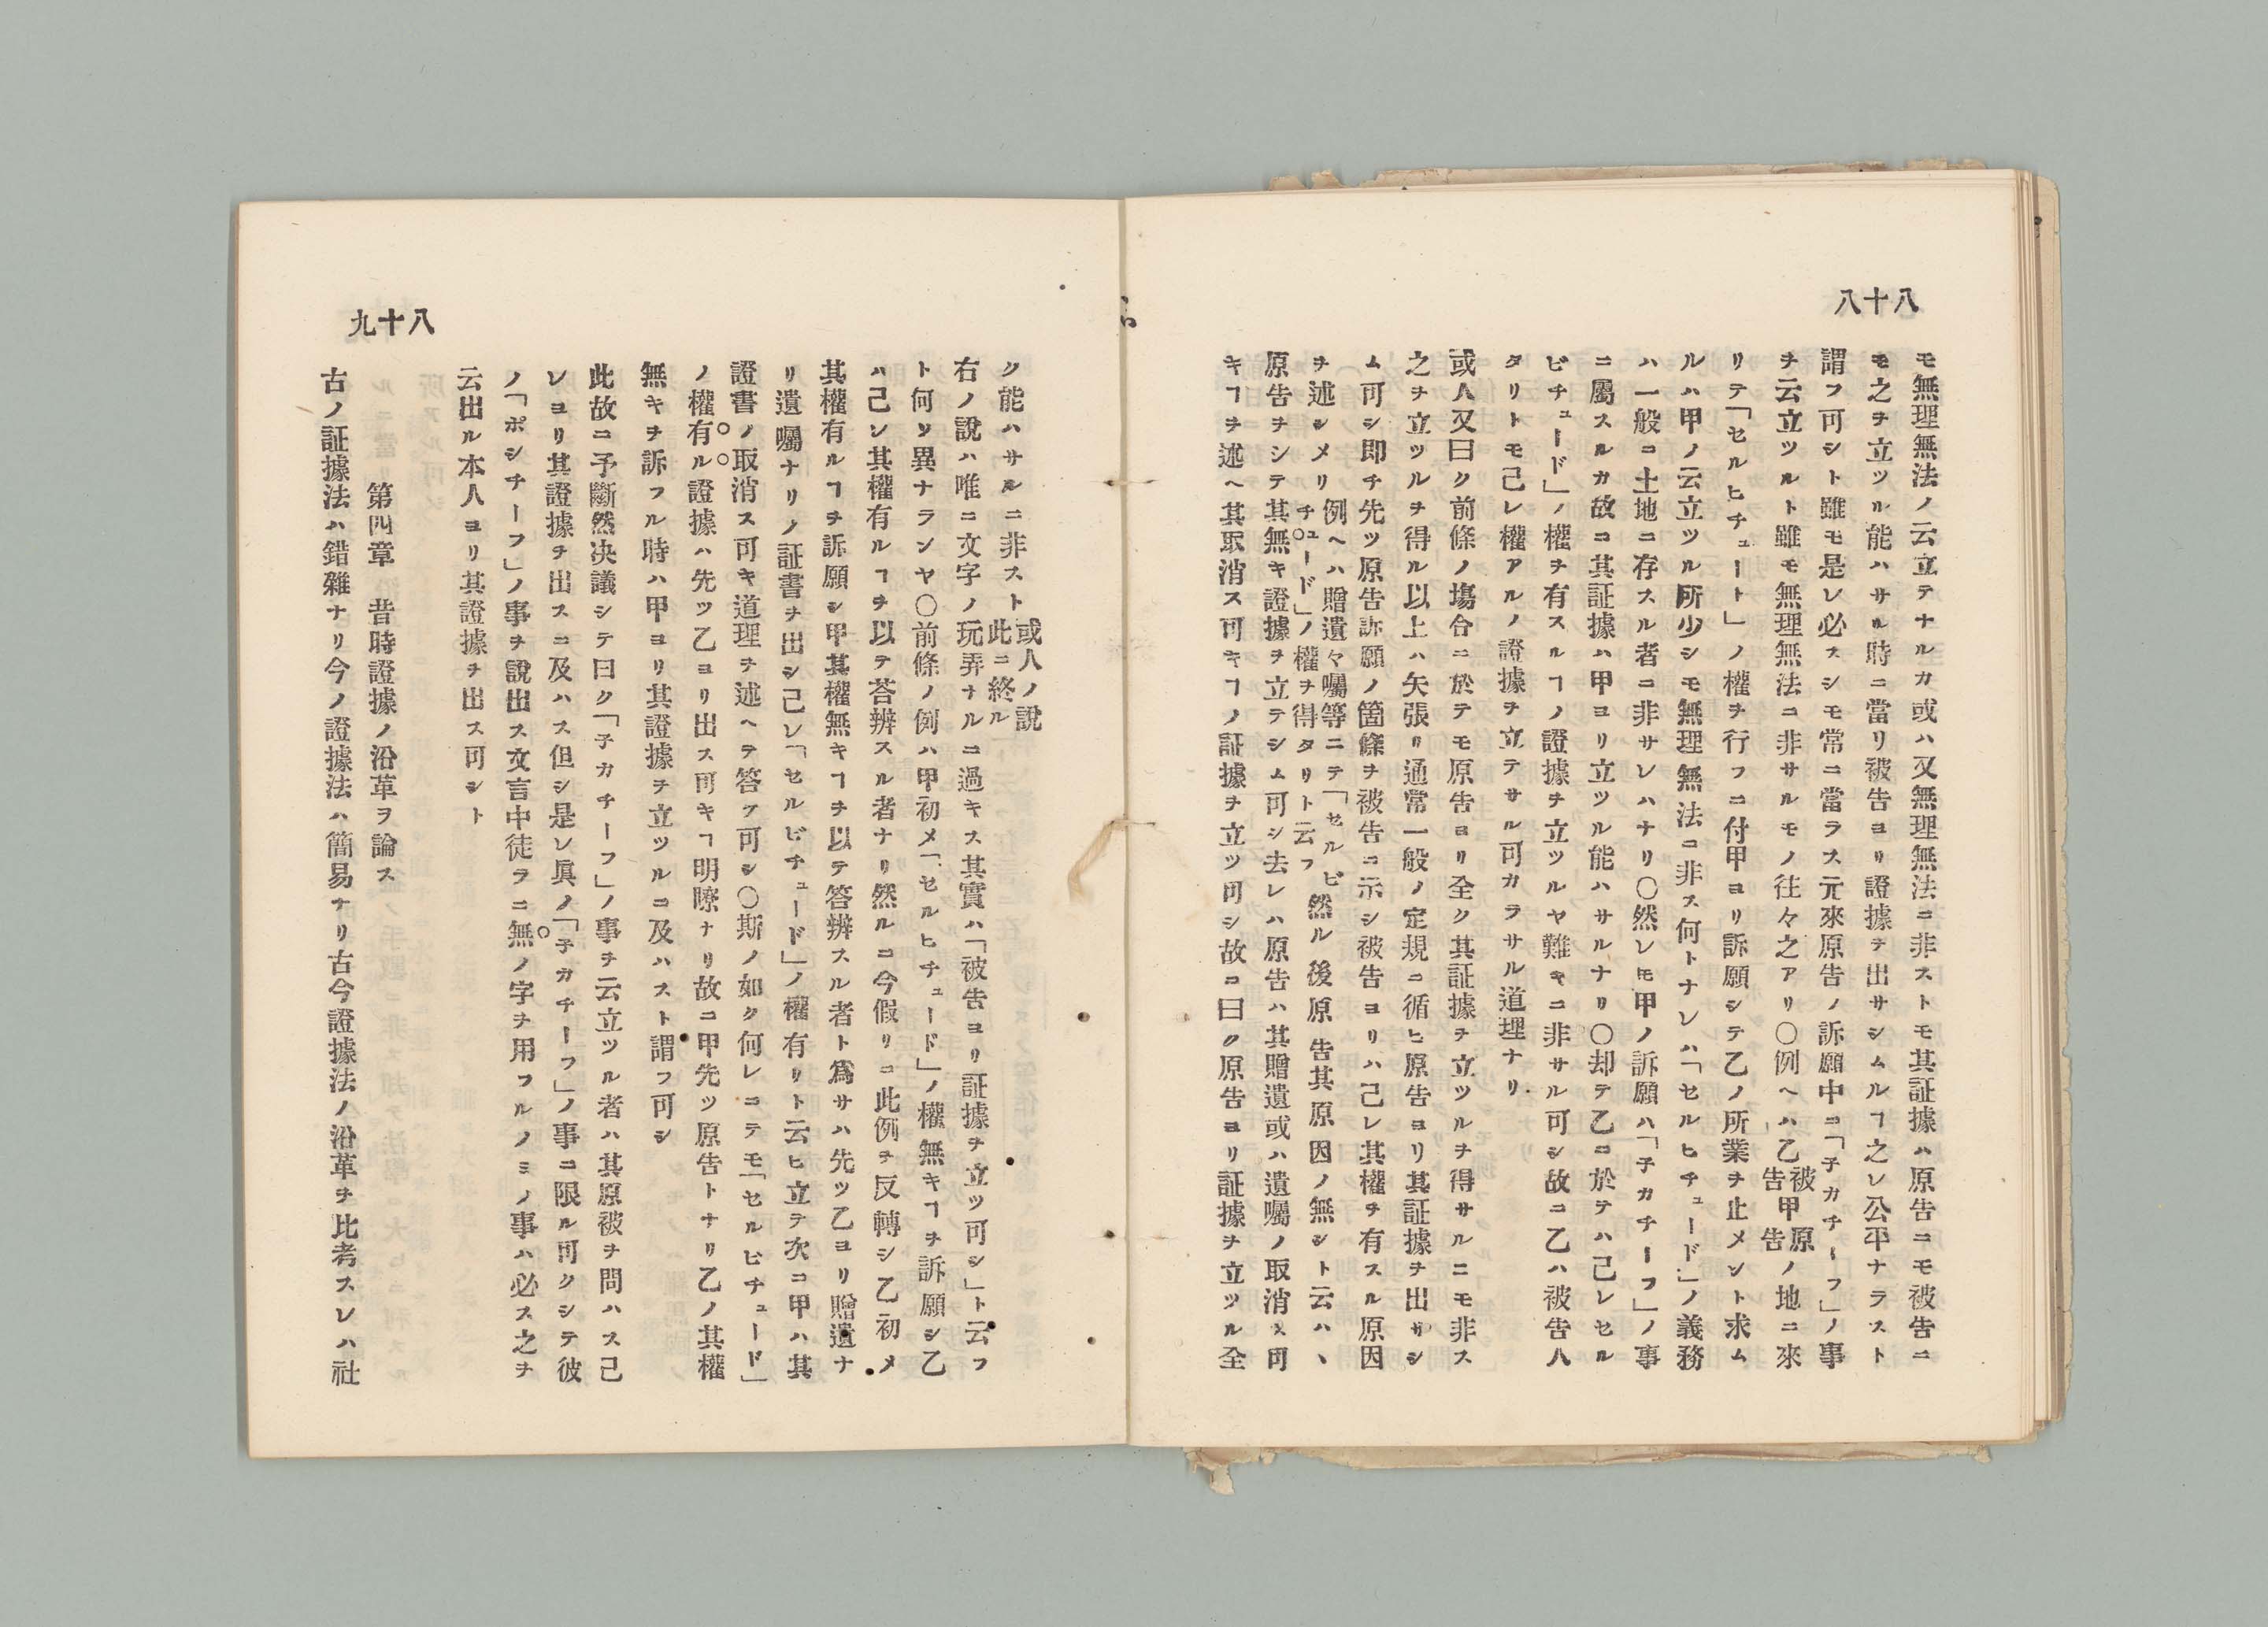 八十八
モ無理無法ノ云立テナルカ或ハ又無理無法ニ非ストモ其証據ハ原告ニモ被告ニ
モ之ヲ立ツル能ハサル時ニ當リ被告ヨリ證據ヲ出サシムルヿ之レ公平ナラスト
謂フ可シト雖モ是レ必スシモ常ニ當ラス元來原告ノ訴願中ニ「子カチーフ」ノ事
ヲ云立ツルト雖モ無理無法ニ非サルモノ往々之アリ〇例ヘハ乙被告甲原告ノ地ニ來
リテ「セルヒチュート」ノ權ヲ行フニ付甲ヨリ訴願シテ乙ノ所業ヲ止メント求ム
ルハ甲ノ云立ツル所少シモ無理無法ニ非ス何トナレハ「セルヒチュード」ノ義務
ハ一般ニ土地ニ存スル者ニ非サレハナリ〇然レㅌ甲ノ訴願ハ「子カチーフ」ノ事
ニ屬スルカ故ニ其証據ハ甲ヨリ立ツル能ハサルナリ〇却テ乙ニ於テハ己レセル
ビチュード」ノ權ヲ有スルヿノ證據ヲ立ツルヤ難キニ非サル可シ故ニ乙ハ被告人
タリトモ己レ權アルノ證據ヲ立テサル可カラサル道理ナリ
或人又曰ク前條ノ塲合ニ於テモ原告ヨリ全ク其証據ヲ立ツルヲ得サルニモ非ス
之ヲ立ツルヲ得ル以上ハ矢張リ通常一般ノ定規ニ循ヒ原告ヨリ其証據ヲ出サシ
ム可シ即チ先ツ原告訴願ノ箇條ヲ被告ニ示シ被告ヨリハ己レ其權ヲ有スル原因
ヲ述シメリ例ヘハ贈遺々囑等ニテ「セルビチュード」ノ權ヲ得タリト云フ然ル後原告其原因ノ無シト云ハヽ
原告ヲシテ其無キ證據ヲ立テシム可シ去レハ原告ハ其贈遺或ハ遺囑ノ取消ス可
キヿヲ述ヘ其取消ス可キヿノ証據ヲ立ツ可シ故ニ曰ク原告ヨリ証據ヲ立ツル全
八十九
ク能ハサルニ非スト或人ノ說此ニ終ル
右ノ說ハ唯ニ文字ノ玩弄ナルニ過キス其實ハ「被告ヨリ証據ヲ立ツ可シ」ト云フ
ト何ソ異ナランヤ〇前條ノ例ハ甲初メ「セルヒチュード」ノ權無キヿヲ訴願シ乙
ハ己レ其權有ルヿヲ以テ荅辨スル者ナリ然ルニ今假リニ此例ヲ反轉シ乙初メ
其權有ルヿヲ訴願シ甲其權無キヿヲ以テ答辨スル者ト爲サハ先ツ乙ヨリ贈遺ナ
リ遺囑ナリノ証書ヲ出シ己レ「セルビチュード」ノ權有リト云ヒ立テ次ニ甲ハ其
證書ノ取消ス可キ道理ヲ述ヘテ答フ可シ〇斯ノ如ク何レニテモ「セルビチュード」
ノ權有ル證據ハ先ツ乙ヨリ出ス可キヿ明瞭ナリ故ニ甲先ツ原告トナリ乙ノ其權
無キヲ訴フル時ハ甲ヨリ其證據ヲ立ツルニ及ハスト謂フ可シ
此故ニ予斷然决議シテ曰ク「子カチーフ」ノ事ヲ云立ツル者ハ其原被ヲ問ハス己
レヨリ其證據ヲ出スニ及ハス但シ是レ眞ノ「子カチーフ」ノ事ニ限ル可クシテ彼
ノ「ポシチーフ」ノ事ヲ說出ス文言中徒ラニ無ノ字ヲ用フルノミノ事ハ必ス之ヲ
云出ル本人ヨリ其證據ヲ出ス可シト
第四章　昔時證據ノ沿革ヲ論ス
古ノ証據法ハ錯雜ナリ今ノ證據法ハ簡易ナリ古今證據法ノ沿革ヲ比考スレハ社